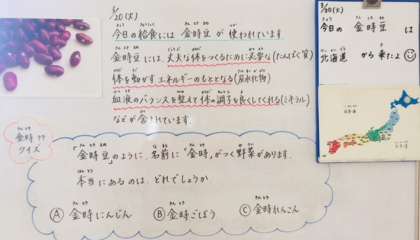 5/20(火)
今日の給食には金時豆が使われています
金時豆には、丈夫な体をつくるために大切な(たんぱく質)
体を動かすエネルギーのもととなる(炭水化物)
血液のバランスを整えて体の調子を良くしてくれる(ミネラル)
などが含まれています。
金時豆
クイズ
金時豆のように名前に「金時」がつく野菜があります。
本当にあるのは、どれでしょうか
Ⓐ 金時にんじん Ⓑ 金時ごぼう Ⓒ 金時れんこん
5/20(火)
今日の 金時豆 は
北海道 から来たよ